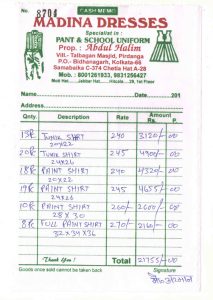 No. 8704 CASH MEMO
MADINA DRESSES
Specialist in :
PANT & SCHOOL UNIFORM
Prop. : Abdul Halim
Vill.- Talbagan Masjid, Pirdanga
P.O.- Bidhanagarh, Kolkata-66
Samabaika C-374 Chetla Hat A-28
Mob. : 8001261933, 9831256427
Name Date 201
Address
Qnty. Description Rate Amount
Rs. P.
13 Pc Tunik Shirt 240 3120/- 00
20x22
20 Pc Tunik Shirt 245 4900/- 00
24x26
18 Pc Paint Shirt 240 4320/- 00
20x22
19 Pc Paint Shirt 245 4655/- 00
24x26
10 Pc Paint Shirt 260 2600/- 00
28x30
8 Pc Full Paint Shirt 270 2160/- 00
32x34x36
Thank You ! Total 21755/- 00
Goods once sold cannot be taken back Signature